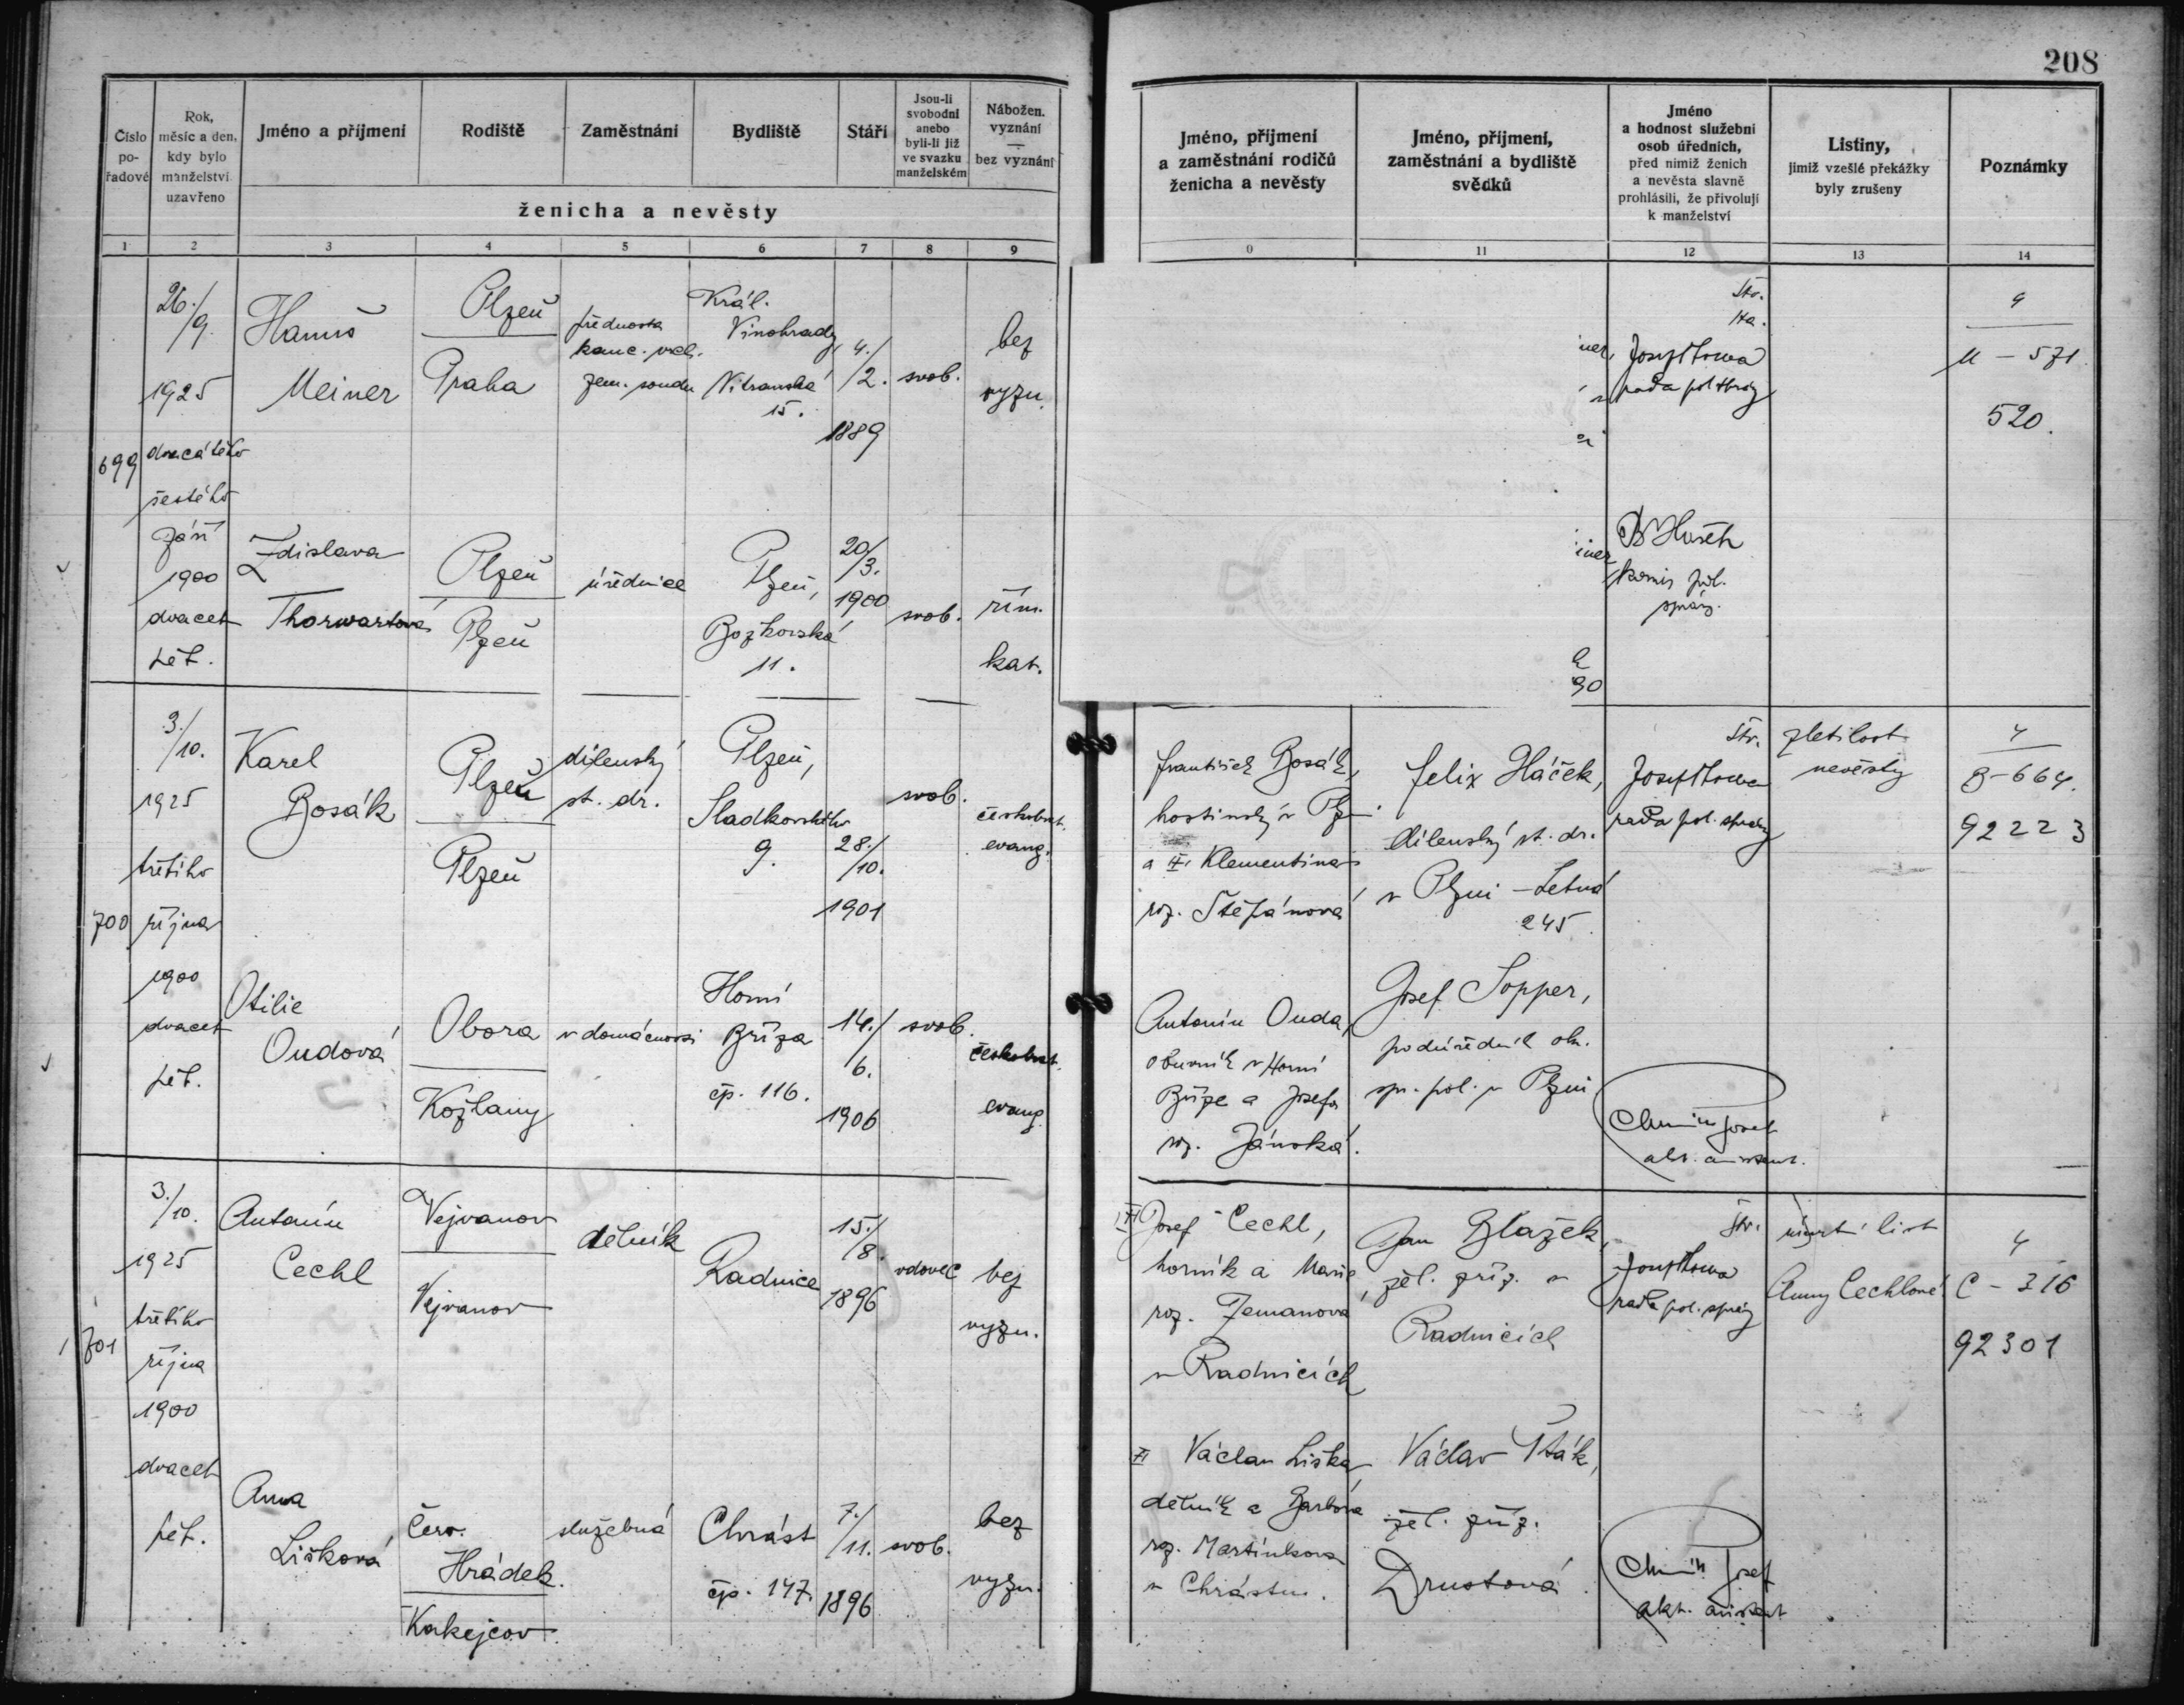 208
Číslo po-řadové
Rok, měsíc a den, kdy bylo manželství uzavřeno
Jméno a příjmení
Rodiště
Zaměstnání
Bydliště
Stáří
Jsou-li svobodni anebo byli-li již ve svazku manželském
Nábožen. vyznání — bez vyznání
ženicha a nevěsty
Jméno, příjmení a zaměstnání rodičů ženicha a nevěsty
Jméno, příjmení, zaměstnání a bydliště svědků
Jméno a hodnost služební osob úředních, před nimiž ženich a nevěsta slavně prohlásili, že přivolují k manželství
Listiny, jimiž vzešlé překážky byly zrušeny
Poznámky
1 2 3 4 5 6 7 8 9 0 11 12 13 14
699
26./9.
1925
dvacátého
šestého
září
1900
dvacet
pět.
Hanuš
Meiner
Plzeň
Praha
přednosta
kanc. vrch.
zem. soudu
Král.
Vinohrady,
Nitranská
15.
4./2.
1889
svob.
bez
vyzn.
Zdislava
Thorwartová
Plzeň
Plzeň
úřednice
Plzeň,
Bozkovská
11.
20/3.
1900
svob.
řím.
kat.
iner,
Josef
rada pol.
4
M – 571.
520.
iner
komis pol.
správ.
90
700
3./10.
1925
třetího
října
1900
dvacet
pět.
Karel
Bosák
Plzeň
Plzeň
dílenský
st. dr.
Plzeň,
Sladkovského
9.
28./10.
1901
svob.
českobrat.
evang.
František Bosák,
hostinský v Plzni
a Klementina
roz. Štěpánová
Felix Háček,
dílenský st. dr.
v Plzni – Letná
245.
Josef
rada pol. správy
zletilost
nevěsty
4
B – 664.
92223
Otilie
Oudová
Obora
Kožlany
v domácnosti
Horní
Bříza
čp. 116.
14./6.
1906
svob.
českobrat.
evang.
Antonín Ouda,
obuvník v Horní
Bříze a Josefa
roz. Jánská.
Josef Sopper,
podúředník
spr. pol. v Plzni
Josef
701
3./10.
1925
třetího
října
1900
dvacet
pět.
Antonín
Cechl
Vejvanov
Vejvanov
dělník
Radnice
15./8.
1896
vdovec
bez
vyzn.
Josef Cechl,
horník a Marie
roz. Zemanova
v Radnicích
Jan Blažek,
žel. zříz. v
Radnicích
Josef
rada pol. správy
úmrt. list
Anny Cechlové
4
C – 316
92301
Anna
Lišková
Červ.
Hrádek.
Kakejcov
služebná
Chrást
čp. 147.
7./11.
1896
svob.
bez
vyzn.
Václav Liška,
dělník a Barbora
roz. Martínkova
v Chrástu.
Václav Pták,
žel. zříz.
Drustová.
Josef
akt. assistent